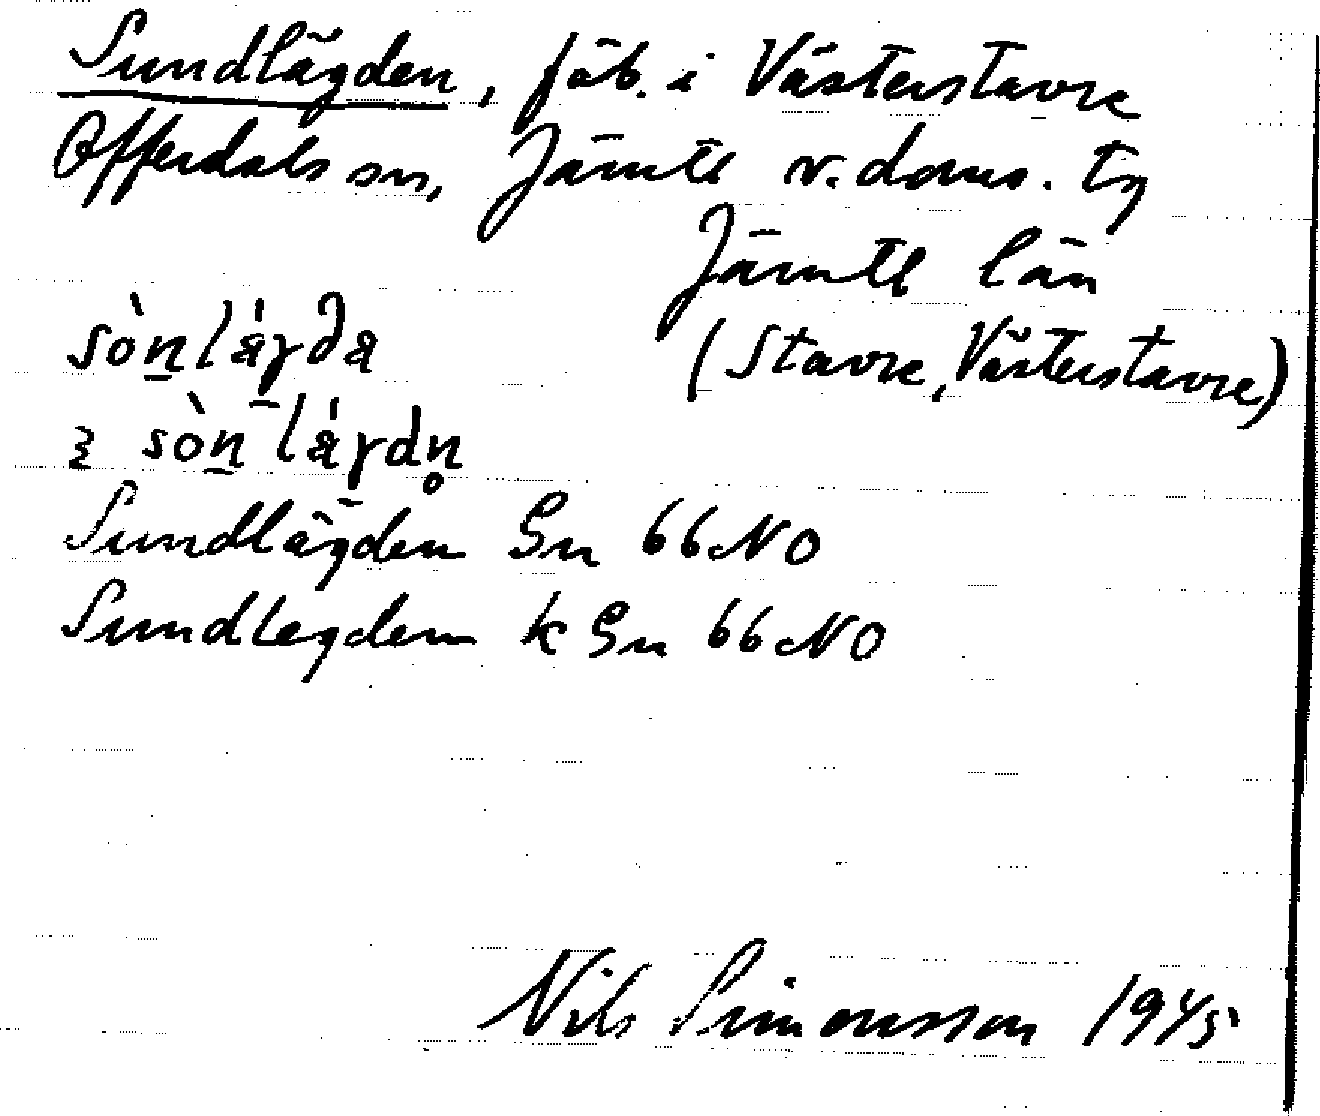 Sundlägden, fäb. i Västerstavre
Offerdals sn, Jämtl v. doms. tg
Jämtl län
(Stavre, Västerstavre)
Sundlägden Gn 66 NO
Sundlegden k Gn 66 NO
Nils Simonsson 1945